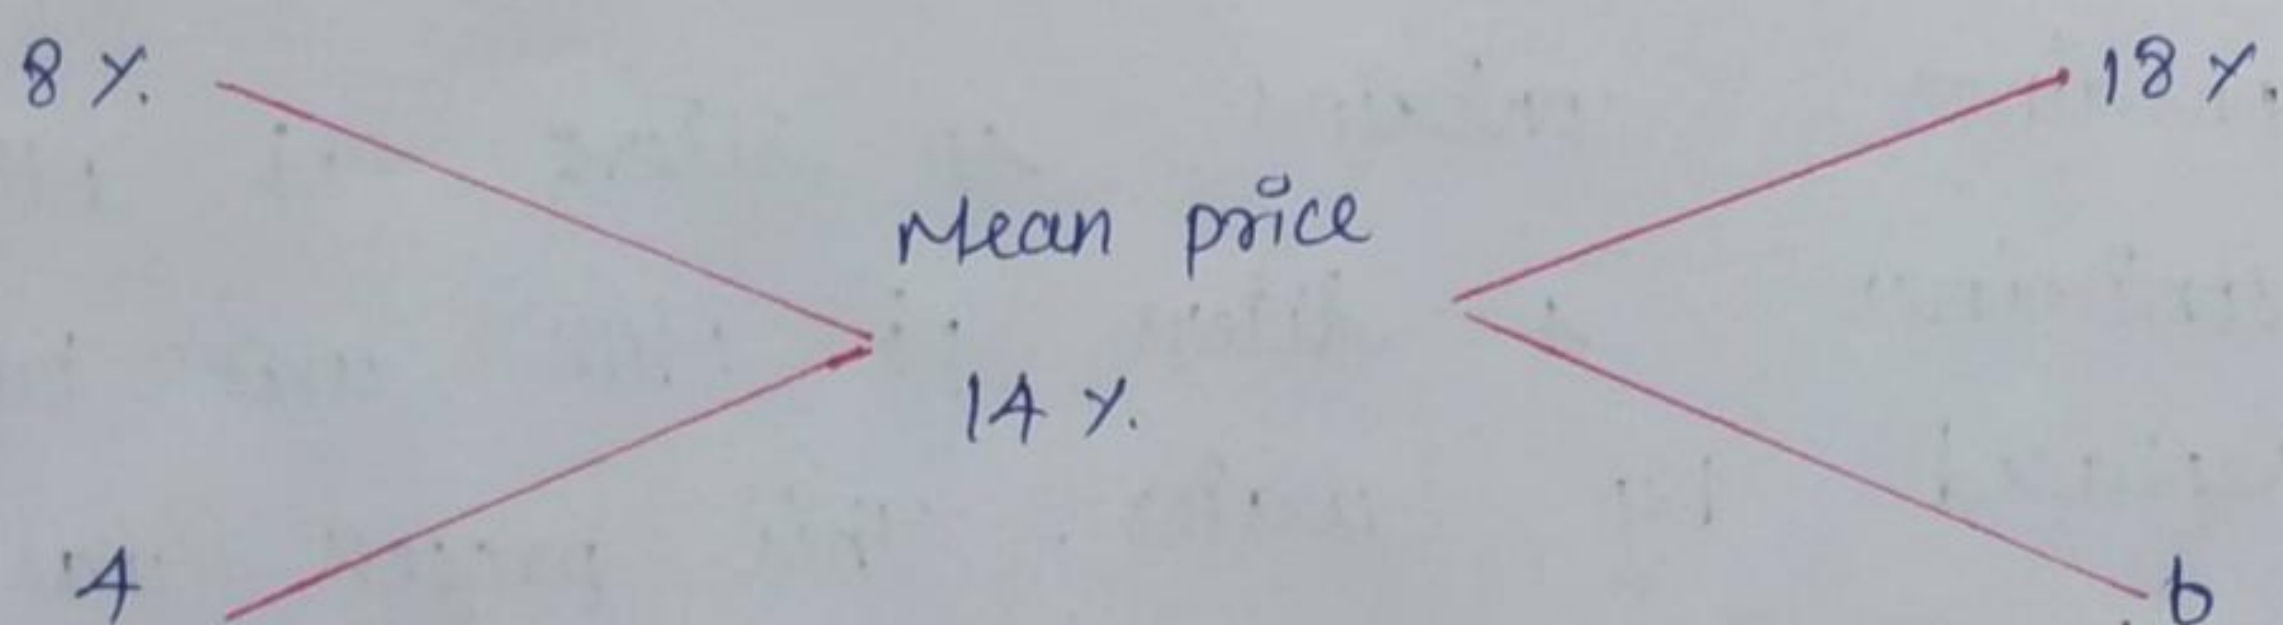 8 %. 18 %.
Mean price
14 %.
4 6